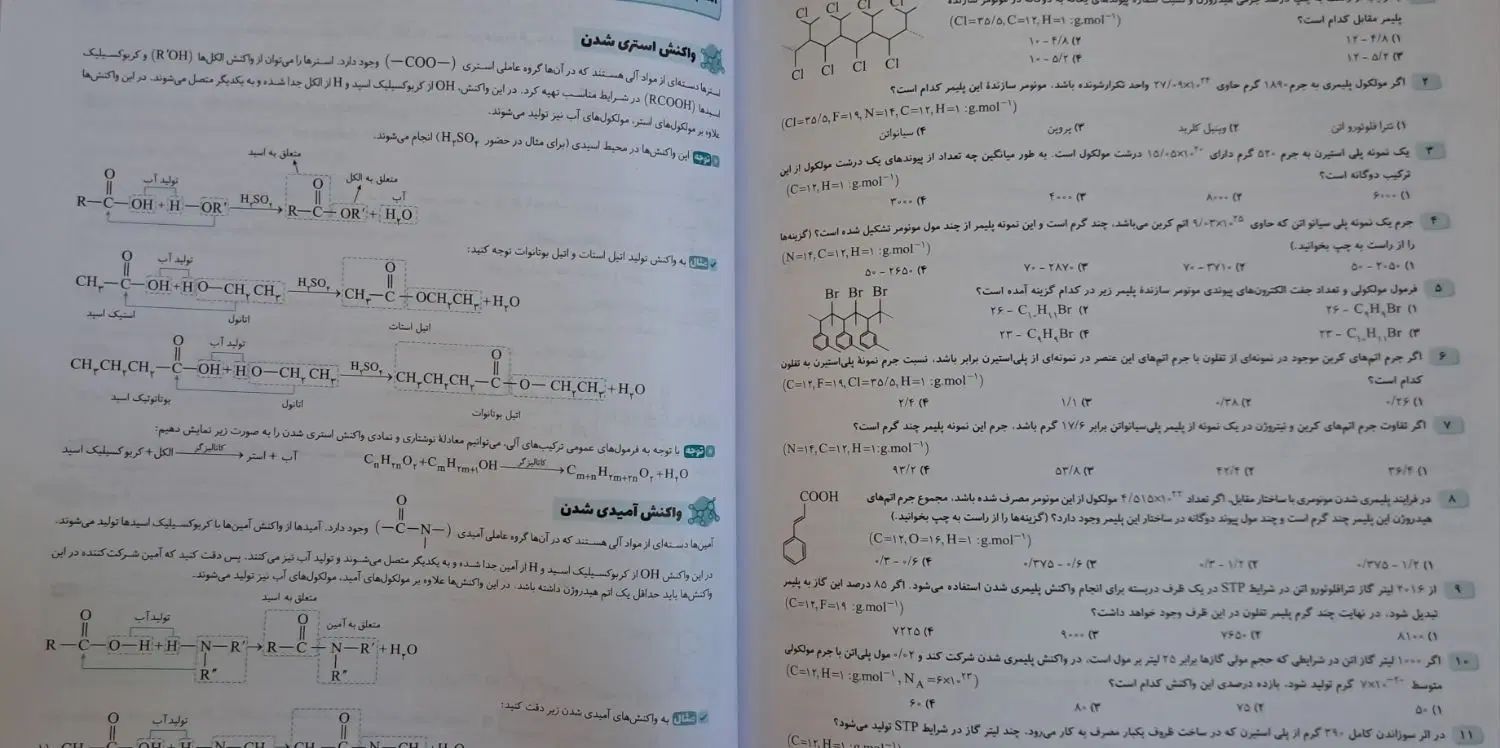 پلیمر مقابل کدام است؟ (Cl=۳۵/۵, C=۱۲, H=۱ :g.mol⁻¹)
Cl Cl Cl Cl
Cl Cl Cl Cl
۱) ۴/۸ – ۱۲ ۲) ۴/۸ – ۱۰
۳) ۵/۲ – ۱۲ ۴) ۵/۲ – ۱۰
۲ اگر مولکول پلیمری به جرم ۱۸۹۰ گرم حاوی ۲۷/۰۹×۱۰²⁴ واحد تکرارشونده باشد، مونومر سازندهٔ این پلیمر کدام است؟
(Cl=۳۵/۵, F=۱۹, N=۱۴, C=۱۲, H=۱ :g.mol⁻¹)
۱) تترا فلوئورو اتن ۲) وینیل کلرید ۳) پروپن ۴) سیانواتن
۳ یک نمونه پلی استیرن به جرم ۵۲۰ گرم دارای ۱۵/۰۵×۱۰²⁰ درشت مولکول است. به طور میانگین چه تعداد از پیوندهای یک درشت مولکول از این
ترکیب دوگانه است؟ (C=۱۲, H=۱ :g.mol⁻¹)
۱) ۶۰۰۰ ۲) ۸۰۰۰ ۳) ۴۰۰۰ ۴) ۳۰۰۰
۴ جرم یک نمونه پلی سیانو اتن که حاوی ۹/۰۳×۱۰²⁵ اتم کربن می‌باشد، چند گرم است و این نمونه پلیمر از چند مول مونومر تشکیل شده است؟ (گزینه‌ها
را از راست به چپ بخوانید.) (N=۱۴, C=۱۲, H=۱ :g.mol⁻¹)
۱) ۲۰۵۰ – ۵۰ ۲) ۳۷۱۰ – ۷۰ ۳) ۲۸۷۰ – ۷۰ ۴) ۲۶۵۰ – ۵۰
۵ فرمول مولکولی و تعداد جفت الکترون‌های پیوندی مونومر سازندهٔ پلیمر زیر در کدام گزینه آمده است؟
Br Br Br
۱) C₉H₉Br – ۲۶ ۲) C₁₀H₁₁Br – ۲۶
۳) C₁₀H₁₁Br – ۲۳ ۴) C₉H₉Br – ۲۳
۶ اگر جرم اتم‌های کربن موجود در نمونه‌ای از تفلون با جرم اتم‌های این عنصر در نمونه‌ای از پلی‌استیرن برابر باشد، نسبت جرم نمونهٔ پلی‌استیرن به تفلون
کدام است؟ (C=۱۲, F=۱۹, Cl=۳۵/۵, H=۱ :g.mol⁻¹)
۱) ۰/۲۶ ۲) ۰/۳۸ ۳) ۱/۱ ۴) ۲/۴
۷ اگر تفاوت جرم اتم‌های کربن و نیتروژن در یک نمونه از پلیمر پلی‌سیانواتن برابر ۱۷/۶ گرم باشد، جرم این نمونه پلیمر چند گرم است؟
(N=۱۴, C=۱۲, H=۱:g.mol⁻¹)
۱) ۳۶/۴ ۲) ۴۲/۴ ۳) ۵۳/۸ ۴) ۹۳/۲
۸ در فرایند پلیمری شدن مونومری با ساختار مقابل، اگر تعداد ۴/۵۱۵×۱۰²² مولکول از این مونومر مصرف شده باشد، مجموع جرم اتم‌های
هیدروژن این پلیمر چند گرم است و چند مول پیوند دوگانه در ساختار این پلیمر وجود دارد؟ (گزینه‌ها را از راست به چپ بخوانید.)
COOH
(C=۱۲, O=۱۶, H=۱ :g.mol⁻¹)
۱) ۱/۲ – ۰/۳۷۵ ۲) ۱/۲ – ۰/۳ ۳) ۰/۶ – ۰/۳۷۵ ۴) ۰/۶ – ۰/۳
۹ از ۲۰۱۶ لیتر گاز تترافلوئورو اتن در شرایط STP در یک ظرف دربسته برای انجام واکنش پلیمری شدن استفاده می‌شود. اگر ۸۵ درصد این گاز به پلیمر
تبدیل شود، در نهایت چند گرم پلیمر تفلون در این ظرف وجود خواهد داشت؟ (C=۱۲, F=۱۹ :g.mol⁻¹)
۱) ۸۱۰۰ ۲) ۷۶۵۰ ۳) ۹۰۰۰ ۴) ۷۲۲۵
۱۰ اگر ۱۰۰۰ لیتر گاز اتن در شرایطی که حجم مولی گازها برابر ۲۵ لیتر بر مول است، در واکنش پلیمری شدن شرکت کند و ۰/۰۲ مول پلی‌اتن با جرم مولکولی
متوسط ۷×۱۰⁻²⁰ گرم تولید شود، بازده درصدی این واکنش کدام است؟ (C=۱۲, H=۱ :g.mol⁻¹, N_A=۶×۱۰²³)
۱) ۵۰ ۲) ۷۵ ۳) ۸۰ ۴) ۶۰
۱۱ در اثر سوزاندن کامل ۳۹۰ گرم از پلی استیرن که در ساخت ظروف یکبار مصرف به کار می‌رود، چند لیتر گاز در شرایط STP تولید می‌شود؟
واکنش استری شدن
استرها دسته‌ای از مواد آلی هستند که در آن‌ها گروه عاملی استری (—COO—) وجود دارد. استرها را می‌توان از واکنش الکل‌ها (R'OH) و کربوکسیلیک
اسیدها (RCOOH) در شرایط مناسب تهیه کرد. در این واکنش، OH از کربوکسیلیک اسید و H از الکل جدا شده و به یکدیگر متصل می‌شوند. در این واکنش‌ها
علاوه بر مولکول‌های استر، مولکول‌های آب نیز تولید می‌شوند.
توجه این واکنش‌ها در محیط اسیدی (برای مثال در حضور H₂SO₄) انجام می‌شوند.
متعلق به اسید
تولید آب متعلق به الکل آب
R—C(=O)—OH + H—OR' —H₂SO₄→ R—C(=O)—OR' + H₂O
مثال به واکنش تولید اتیل استات و اتیل بوتانوات توجه کنید:
تولید آب
CH₃—C(=O)—OH + H O—CH₂CH₃ —H₂SO₄→ CH₃—C(=O)—OCH₂CH₃ + H₂O
استیک اسید اتانول اتیل استات
تولید آب
CH₃CH₂CH₂—C(=O)—OH + H O—CH₂CH₃ —H₂SO₄→ CH₃CH₂CH₂—C(=O)—O—CH₂CH₃ + H₂O
بوتانوئیک اسید اتانول اتیل بوتانوات
توجه با توجه به فرمول‌های عمومی ترکیب‌های آلی، می‌توانیم معادلهٔ نوشتاری و نمادی واکنش استری شدن را به صورت زیر نمایش دهیم:
آب + استر ←کاتالیزگر— الکل + کربوکسیلیک اسید
CₙH₂ₙO₂ + CₘH₂ₘ₊₁OH —کاتالیزگر→ Cₘ₊ₙH₂ₘ₊₂ₙO₂ + H₂O
واکنش آمیدی شدن
آمین‌ها دسته‌ای از مواد آلی هستند که در آن‌ها گروه عاملی آمیدی (—C(=O)—N—) وجود دارد. آمیدها از واکنش آمین‌ها با کربوکسیلیک اسیدها تولید می‌شوند.
در این واکنش OH از کربوکسیلیک اسید و H از آمین جدا شده و به یکدیگر متصل می‌شوند و تولید آب نیز می‌کنند. پس دقت کنید که آمین شرکت‌کننده در این
واکنش‌ها باید حداقل یک اتم هیدروژن داشته باشد. در این واکنش‌ها علاوه بر مولکول‌های آمید، مولکول‌های آب نیز تولید می‌شوند.
متعلق به اسید
تولید آب متعلق به آمین
R—C(=O)—O—H + H—N(R'')—R' → R—C(=O)—N(R'')—R' + H₂O
مثال به واکنش‌های آمیدی شدن زیر دقت کنید:
تولید آب